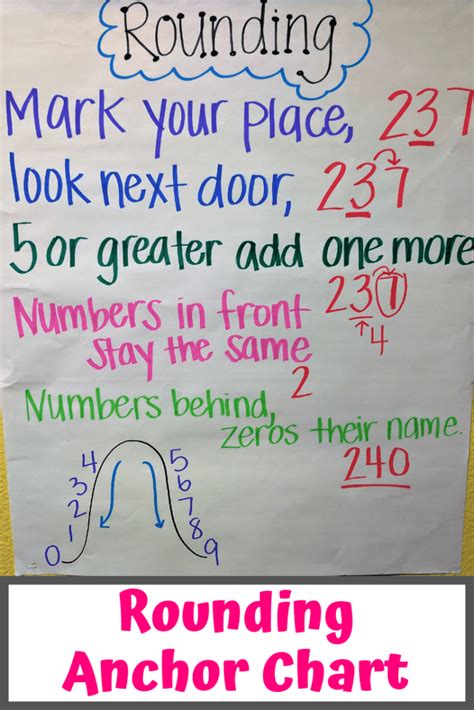 Rounding
Mark your place, 237
look next door, 237
5 or greater add one more
Numbers in front 237
stay the same 4
2
Numbers behind,
zeros their name.
240
4 5
3 6
2 7
1 8
0 9
Rounding
Anchor Chart